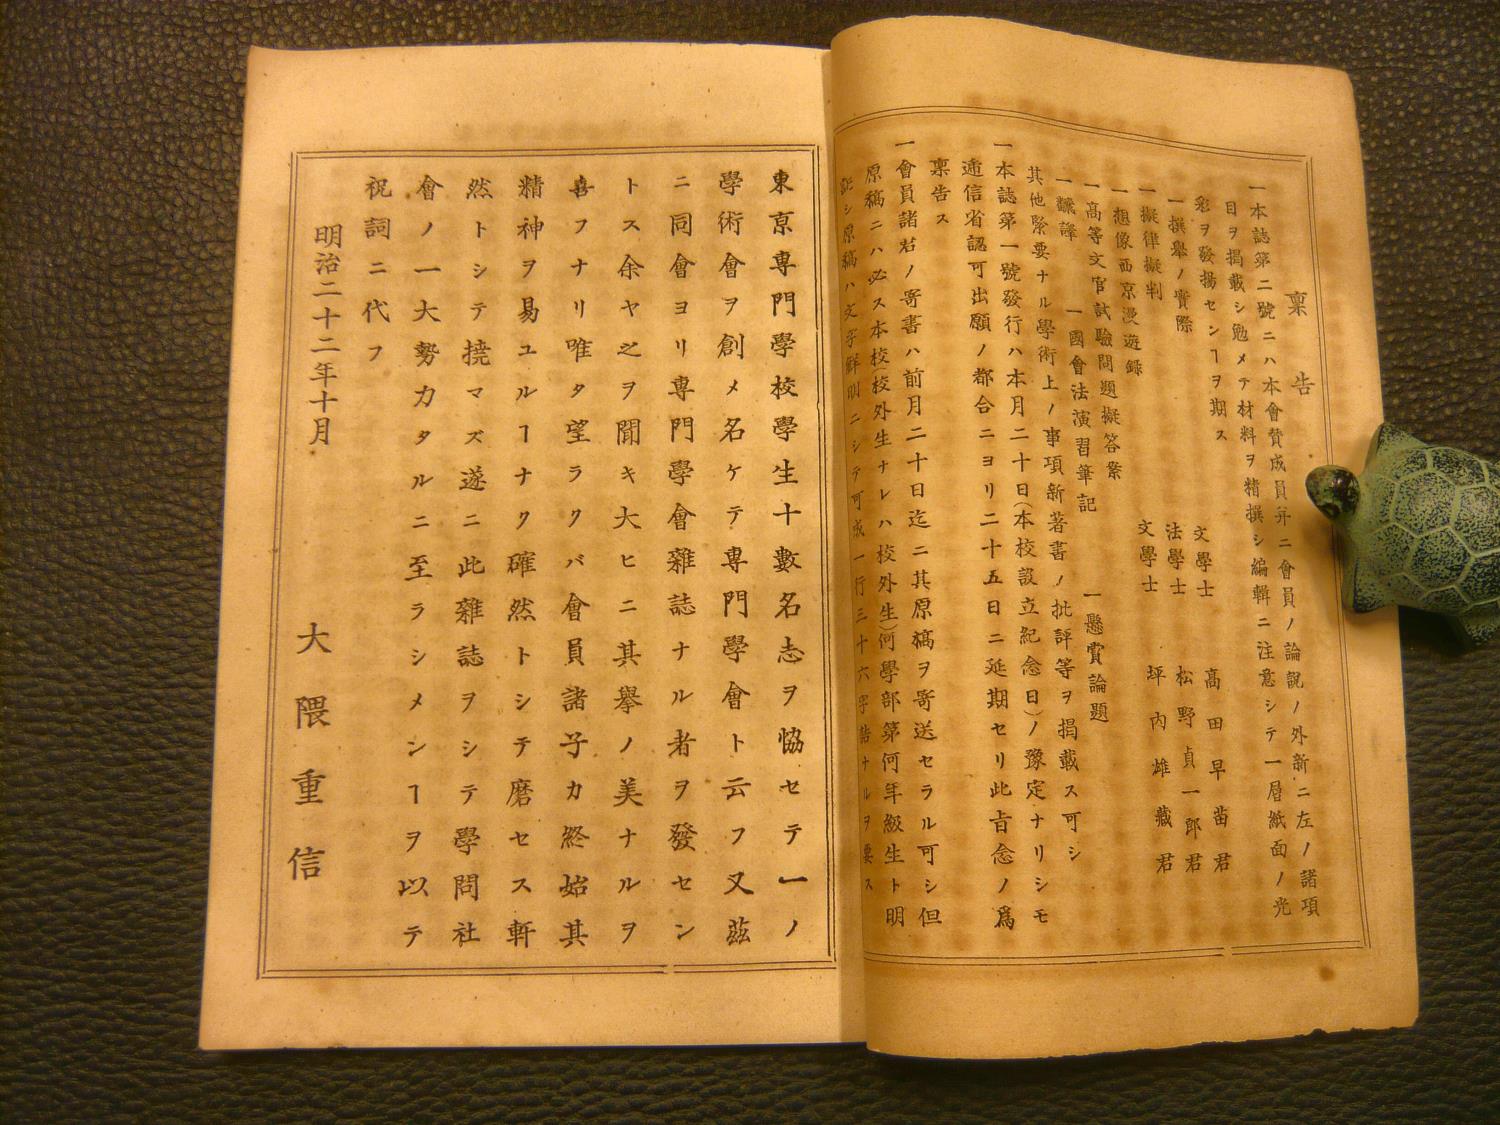 稟告
一本誌第二號ニハ本會賛成員幷ニ會員ノ論説ノ外新ニ左ノ諸項
目ヲ揭載シ勉メテ材料ヲ精撰シ編輯ニ注意シテ一層紙面ノ光
彩ヲ發揚センヿヲ期ス
一撰舉ノ實際 文學士 髙田早苗君
一擬律擬判 法學士 松野貞一郎君
一想像西京漫遊録 文學士 坪内雄藏君
一高等文官試驗問題擬答案
一飜譯 一國會法演習筆記 一懸賞論題
其他緊要ナル學術上ノ事項新著書ノ批評等ヲ揭載ス可シ
一本誌第一號發行ハ本月二十日(本校設立紀念日)ノ豫定ナリシモ
逓信省認可出願ノ都合ニヨリ二十五日ニ延期セリ此旨念ノ爲
稟告ス
一會員諸君ノ寄書ハ前月二十日迄ニ其原稿ヲ寄送セラル可シ但
原稿ニハ必ス本校(校外生ナレハ校外生)何學部第何年級生ト明
記シ原稿ハ文字鮮明ニシテ可成一行三十六字詰ナルヲ要ス
東京専門學校學生十數名志ヲ恊セテ一ノ
學術會ヲ創メ名ケテ専門學會ト云フ又茲
ニ同會ヨリ専門學會雜誌ナル者ヲ發セン
トス余ヤ之ヲ聞キ大ヒニ其擧ノ美ナルヲ
喜フナリ唯タ望ラクバ會員諸子カ終始其
精神ヲ易ユルヿナク確然トシテ磨セス軒
然トシテ撓マズ遂ニ此雜誌ヲシテ學問社
會ノ一大勢力タルニ至ラシメンヿヲ以テ
祝詞ニ代フ
明治二十二年十月
大隈重信